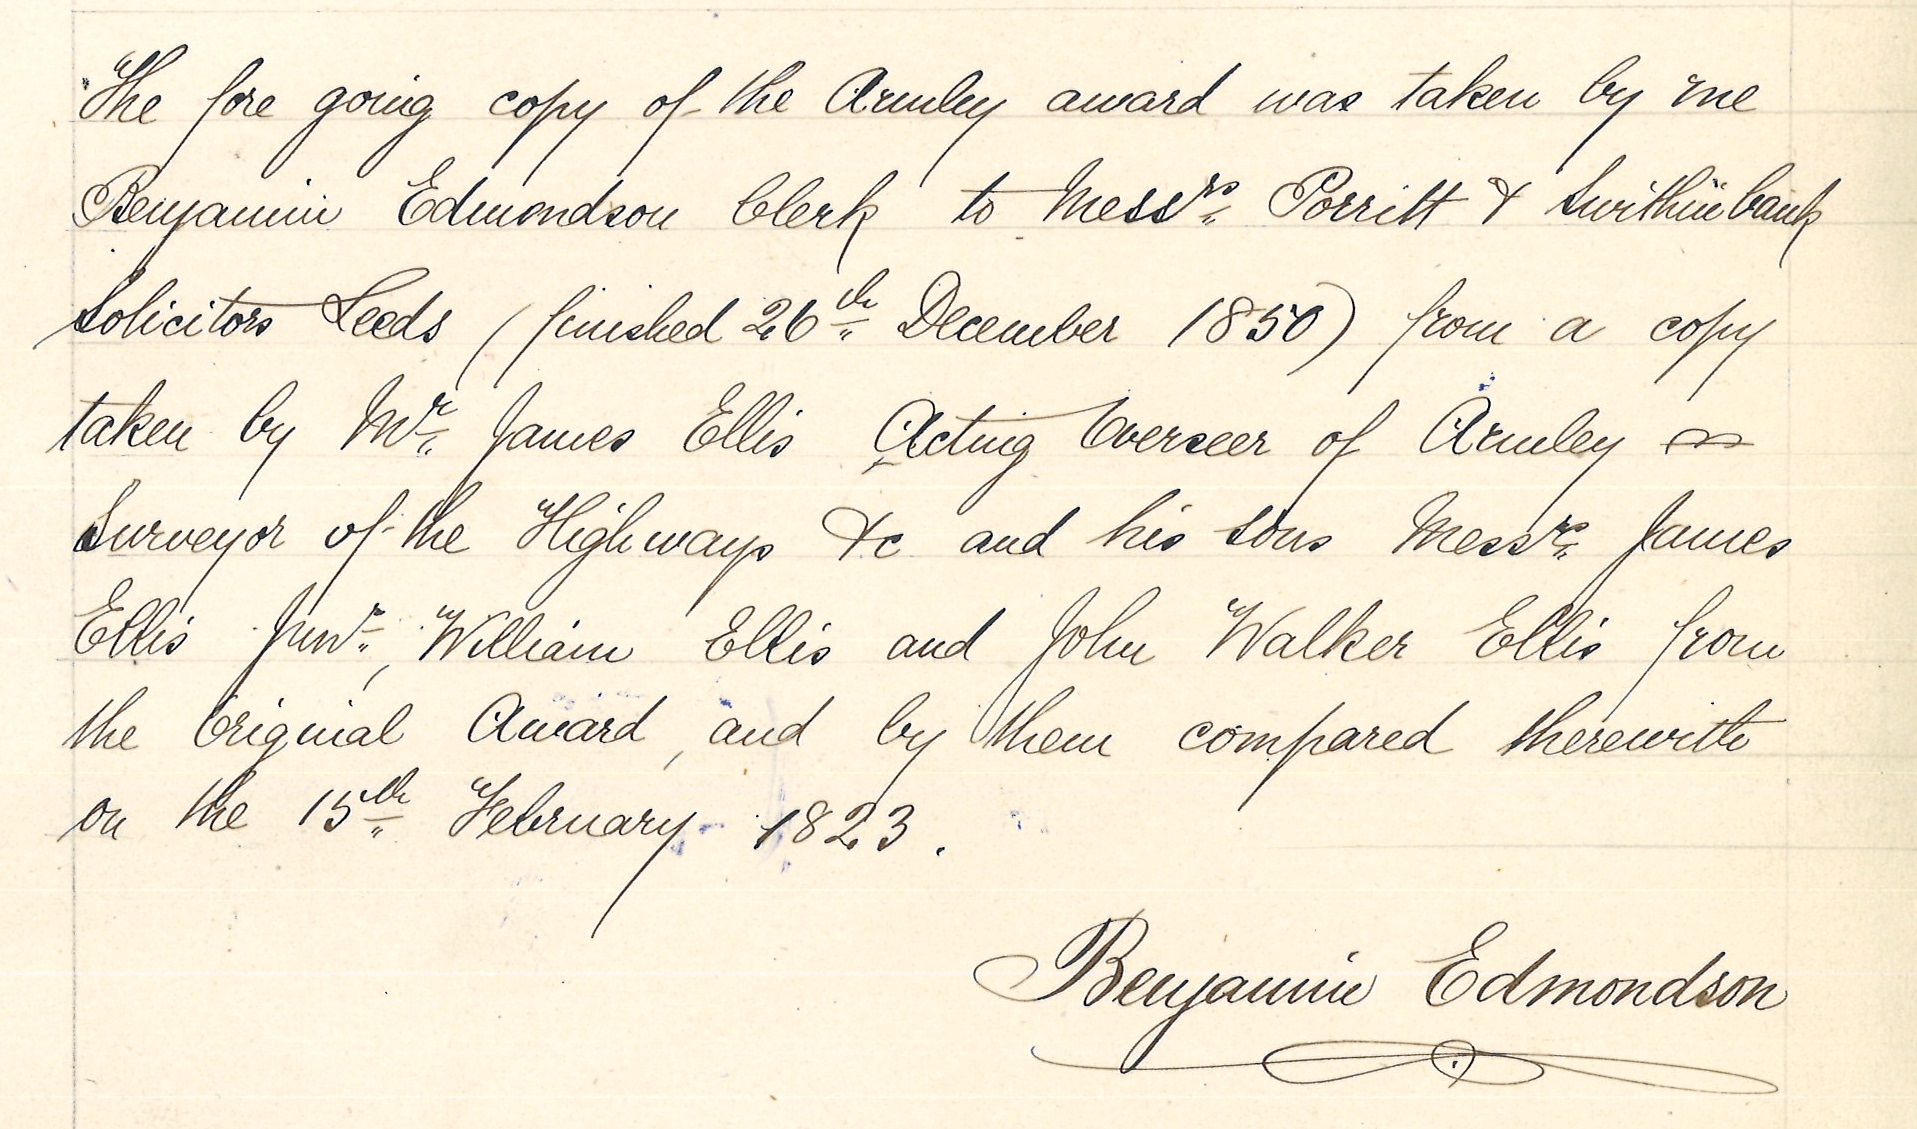 The fore going copy of the Armley award was taken by me
Benjamin Edmondson Clerk to Messrs. Porritt & Swithinbank
Solicitors Leeds (finished 26th December 1850) from a copy
taken by Mr. James Ellis Acting Overseer of Armley
Surveyor of the Highways &c and his sons Messrs. James
Ellis Junr, William Ellis and John Walker Ellis from
the Original Award, and by them compared therewith
on the 15th February 1823.
Benjamin Edmondson